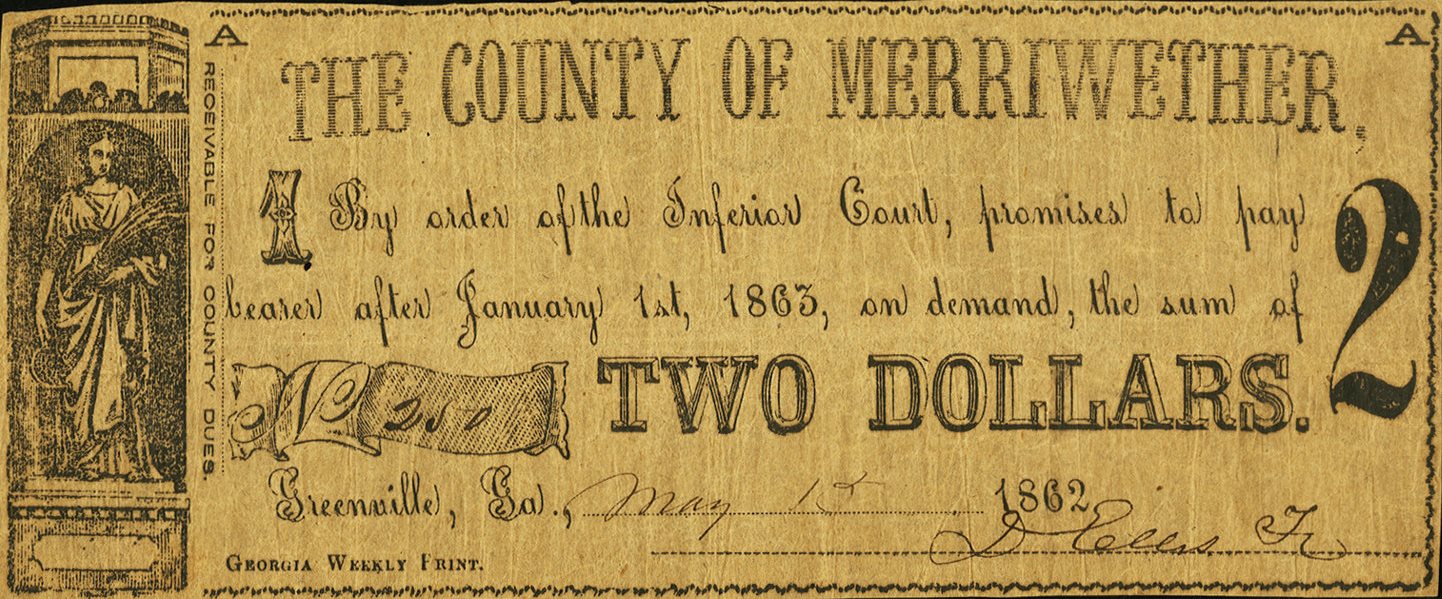 A
A
THE COUNTY OF MERRIWETHER,
RECEIVABLE FOR COUNTY DUES.
By order of the Inferior Court, promises to pay
bearer after January 1st, 1863, on demand, the sum of
2
No
TWO DOLLARS.
Greenville, Ga., May 15 1862
D Ellis Tr
GEORGIA WEEKLY PRINT.